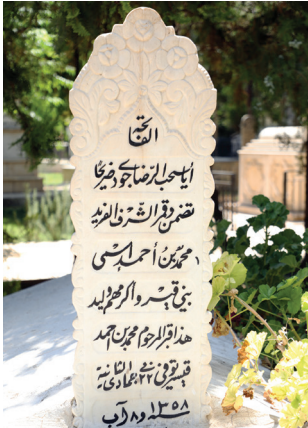 الفاتحة
أيا سحب الرضا جودي ضريحًا
تضمن وقر الشرف الفريد
محمد بن أحمد
بني قيسر وأكرمهم وليد
هذا قبر المرحوم محمد بن احمد
قيسر توفي في ٢٢ جمادى الثانية
١٣٥٨ و ٨ آب